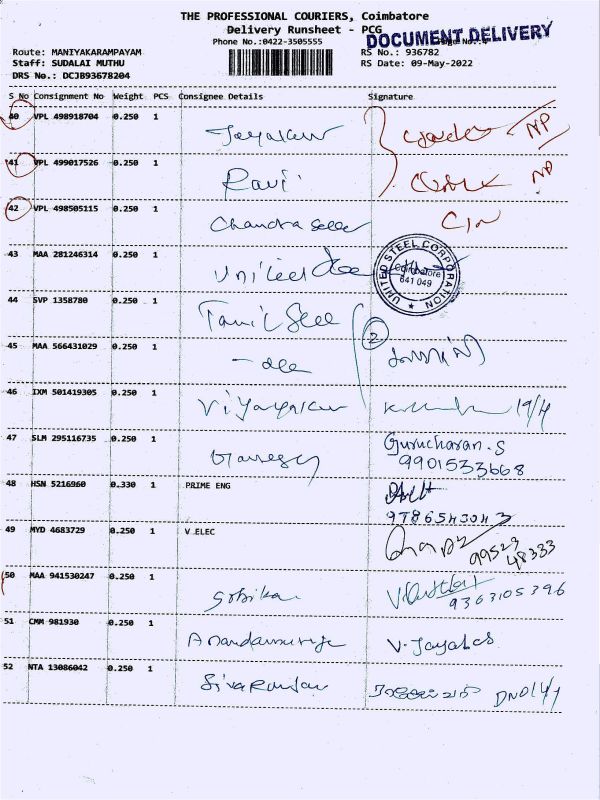 THE PROFESSIONAL COURIERS, Coimbatore
Delivery Runsheet - PCG
DOCUMENT DELIVERY
Phone No.:0422-3505555
Route: MANIYAKARAMPAYAM
RS No.: 936782
Staff: SUDALAI MUTHU
RS Date: 09-May-2022
DRS No.: DCJB93678204
S No Consignment No Weight PCS Consignee Details Signature
40 VPL 498918704 0.250 1
Jayakur NP
41 VPL 499017526 0.250 1
Ravi NP
42 VPL 498505115 0.250 1
Chandra
43 MAA 281246314 0.250 1
United UNITED STEEL CORPORATION Coimbatore 641 049
44 SVP 1358780 0.250 1
Tamil
2
45 MAA 566431029 0.250 1
46 IXM 501419305 0.250 1
Vijayakur 19/4
47 SLM 295116735 0.250 1
Gurucharan.S
9901533668
48 HSN 5216960 0.330 1 PRIME ENG
9786543043
49 MYD 4683729 0.250 1 V ELEC
99523
48333
50 MAA 941530247 0.250 1
Gobika
9363105396
51 CMM 981930 0.250 1
V. Jayal
52 NTA 13086042 0.250 1
Sivaranjan